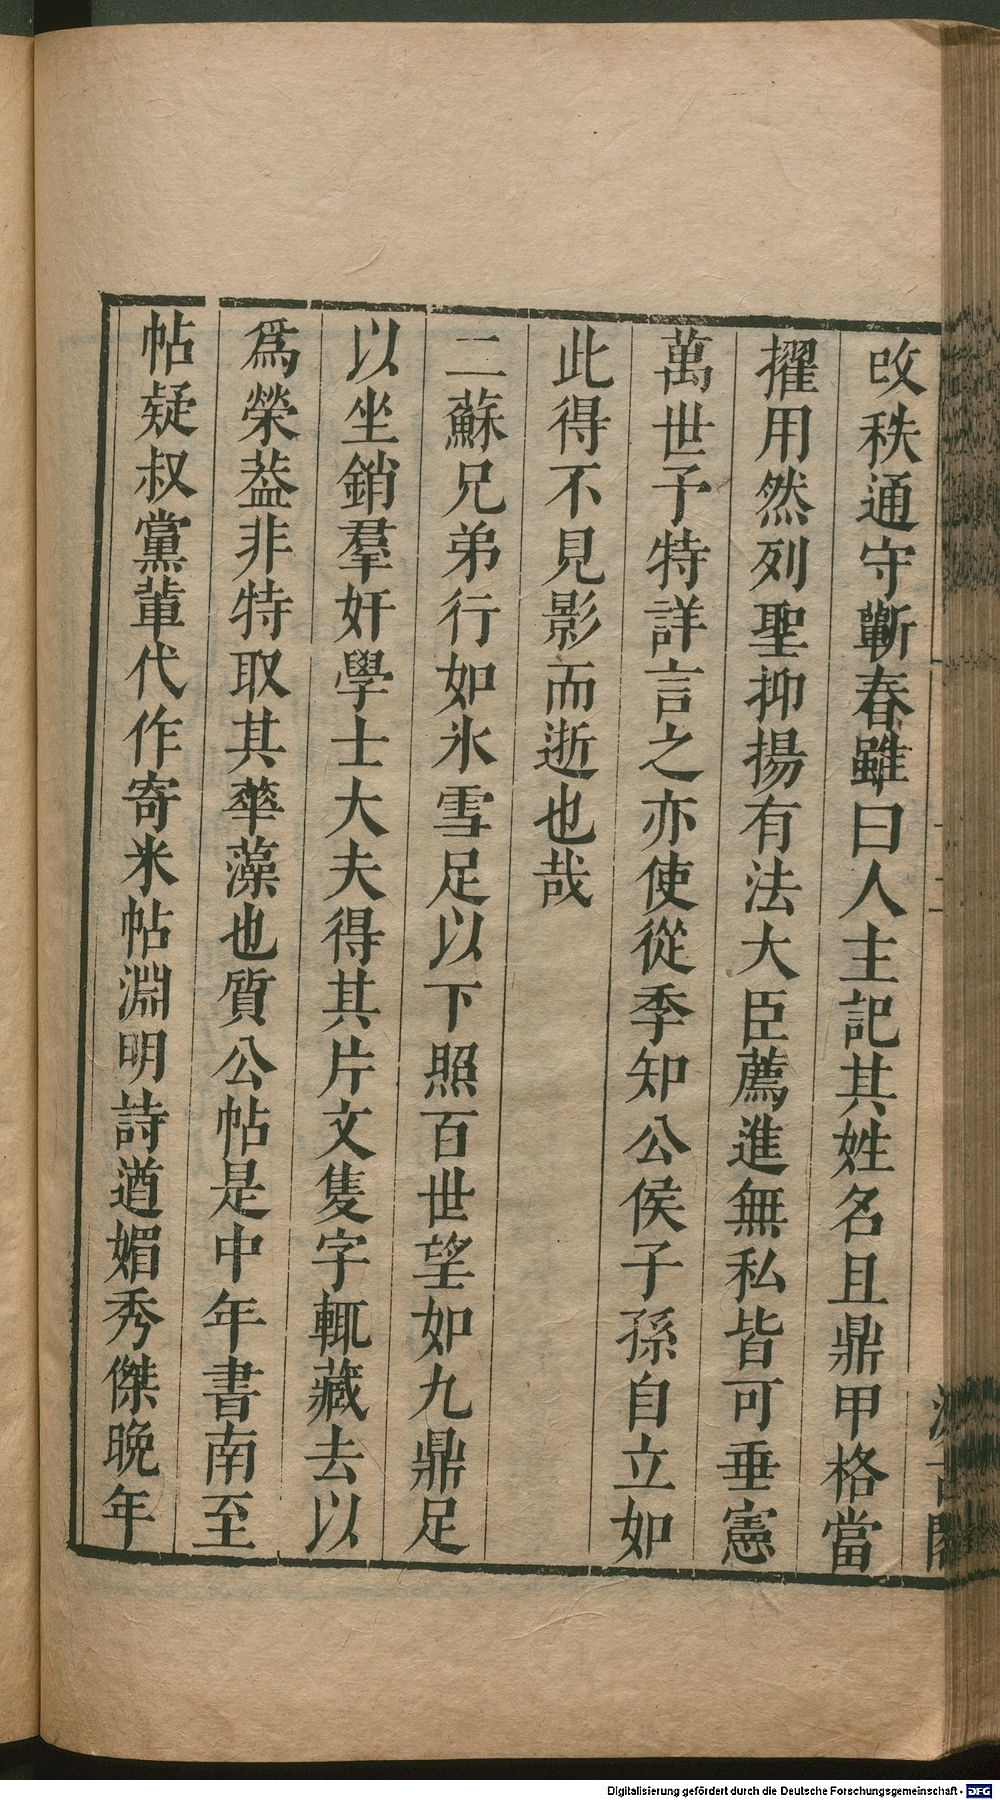 改秩通守蘄春雖曰人主記其姓名且鼎甲格當
擢用然列聖抑揚有法大臣薦進無私皆可垂憲
萬世予特詳言之亦使從季知公侯子孫自立如
此得不見影而逝也哉
二蘇兄弟行如氷雪足以下照百世望如九鼎足
以坐銷羣奸學士大夫得其片文隻字輒藏去以
爲榮葢非特取其華藻也質公帖是中年書南至
帖疑叔黨軰代作寄米帖淵明詩遒媚秀傑晚年
Digitalisierung gefördert durch die Deutsche Forschungsgemeinschaft - DFG